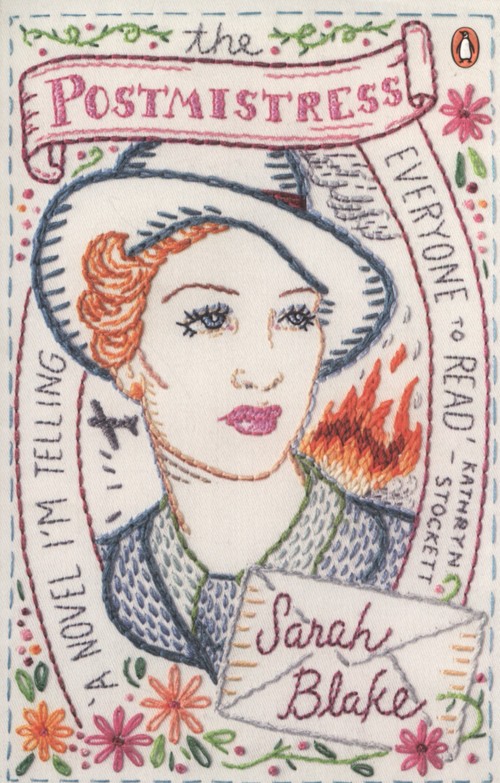 the
POSTMISTRESS
'A NOVEL I'M TELLING
EVERYONE TO READ' - KATHRYN
STOCKETT
Sarah
Blake